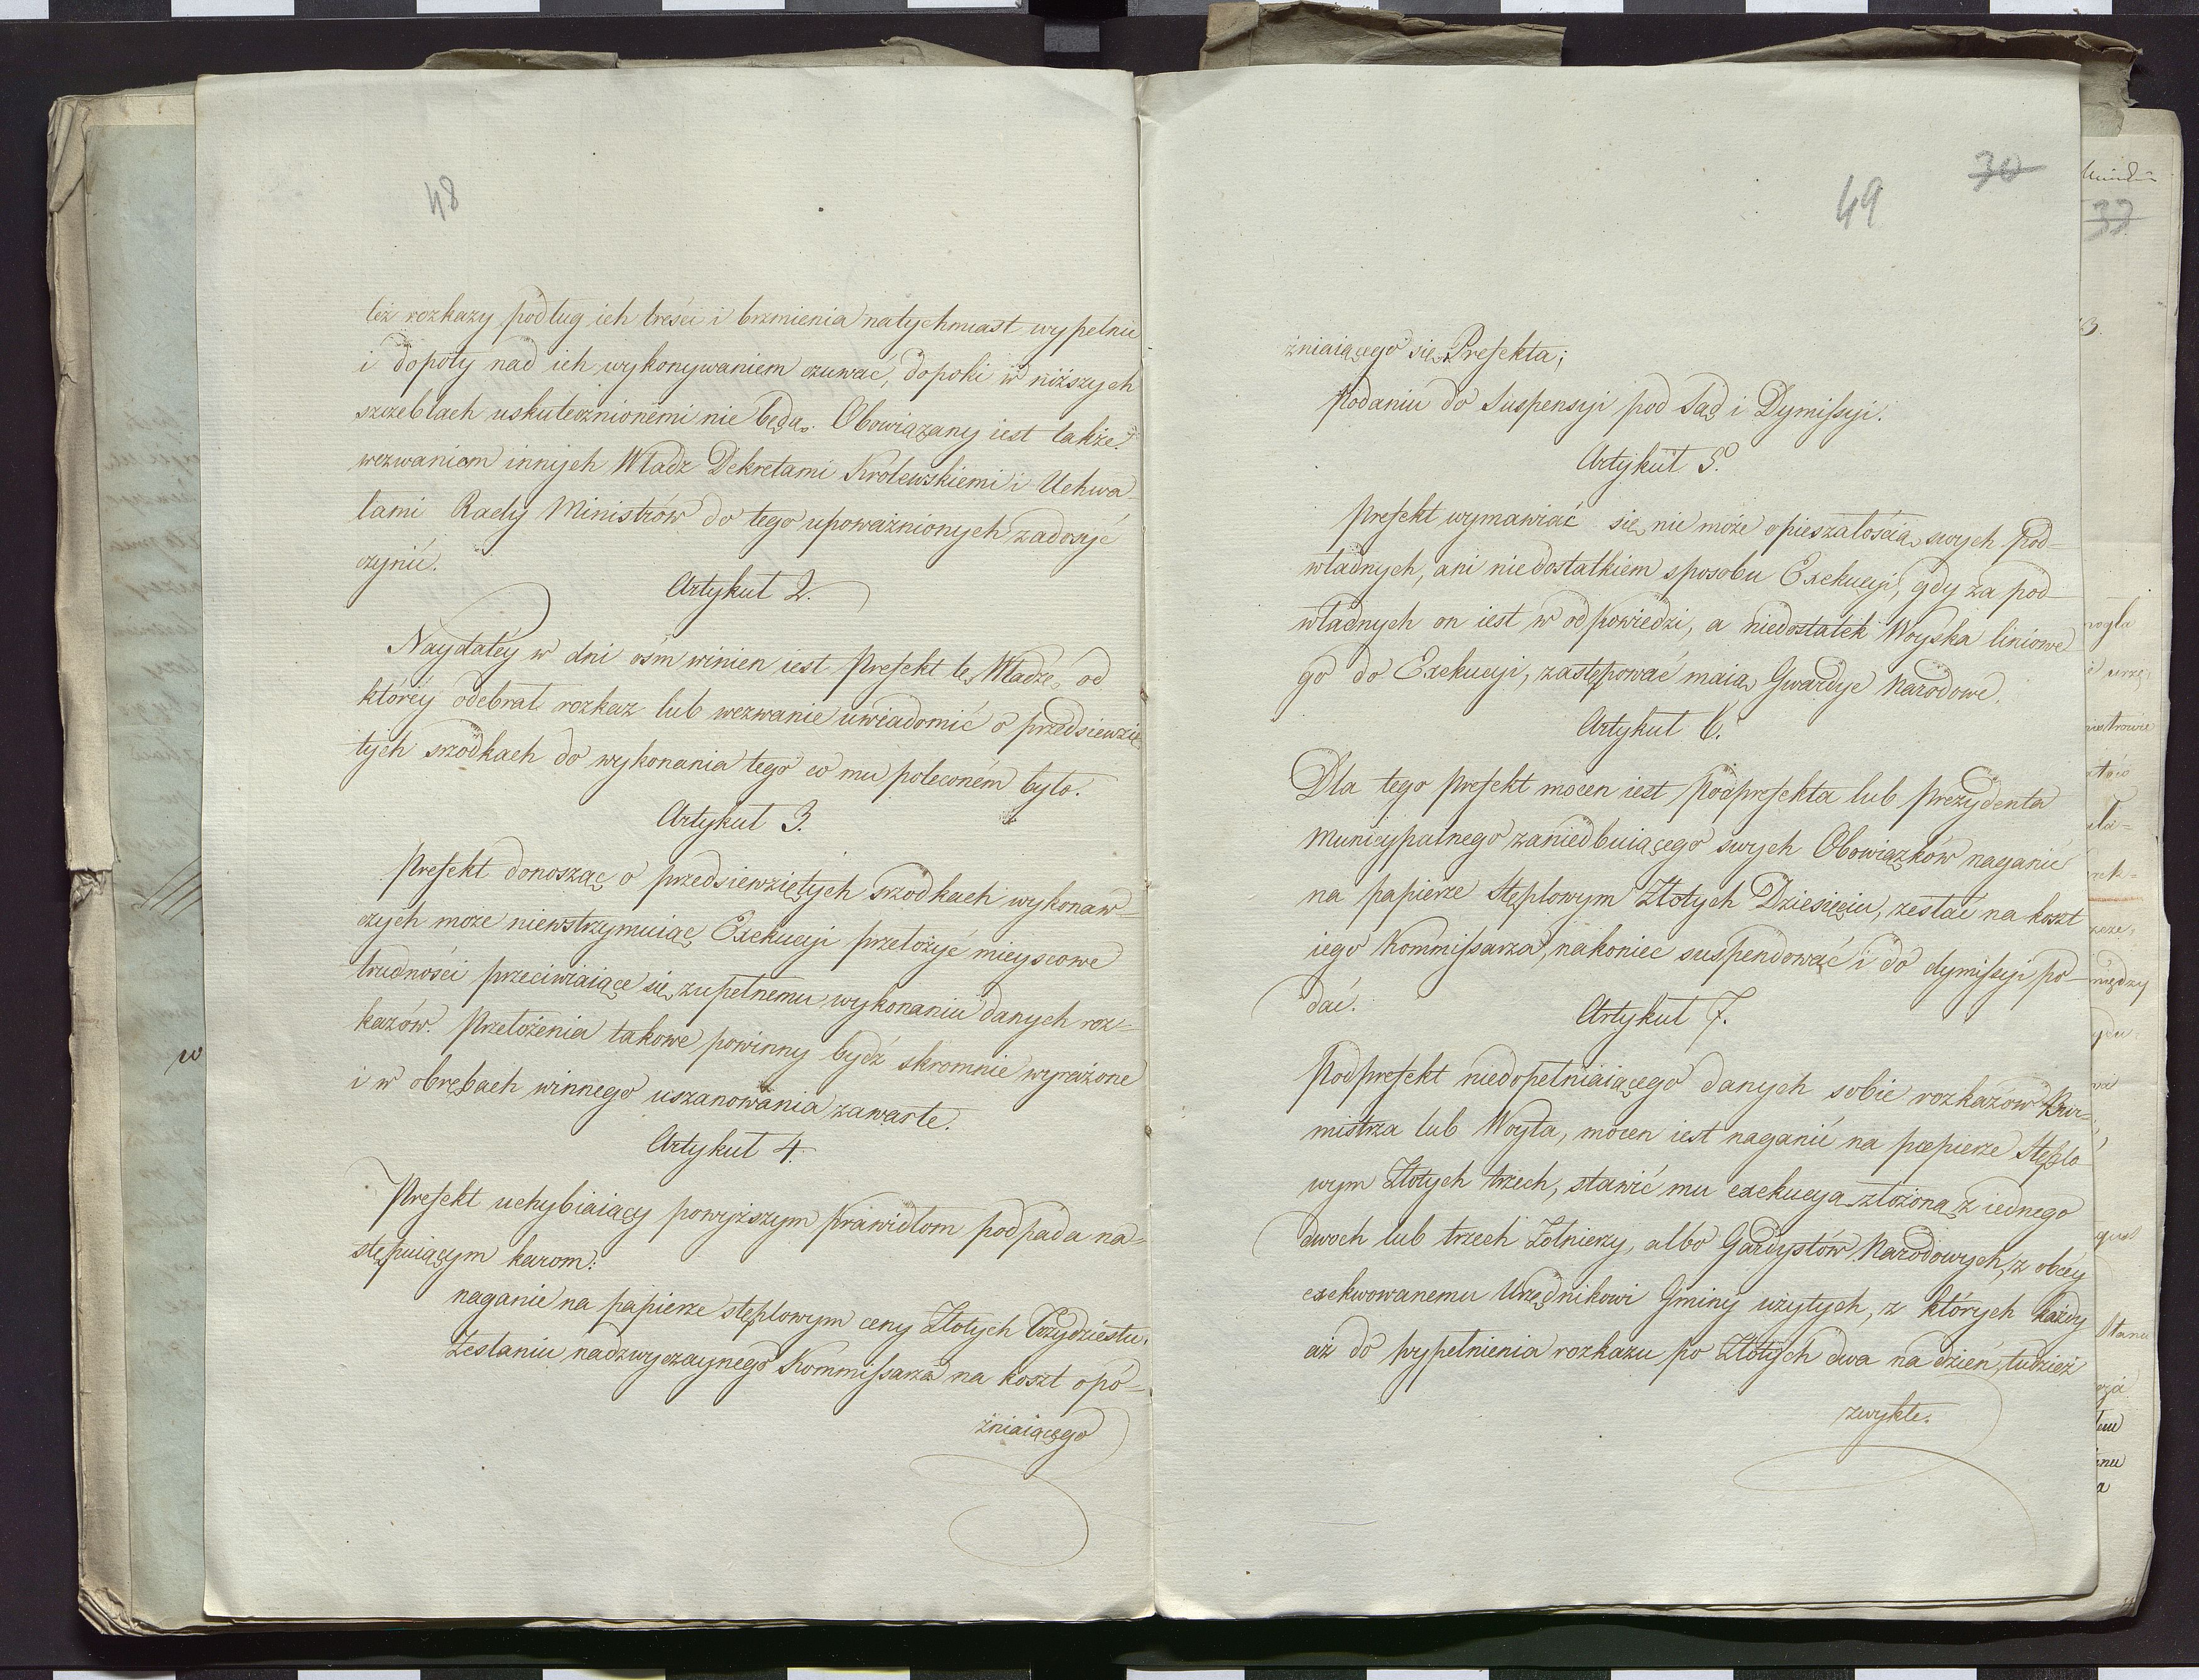 48
też rozkazy podług ich treści i brzmienia natychmiast wypełnić
i dopoty nad ich wykonywaniem czuwać, dopoki w niższych
szczeblach uskutecznionemi nie będą. Obowiązany iest także
wezwaniom innych Władz Dekretami Krolewskiemi i Uchwa-
łami Rady Ministrów do tego upoważnionych zadosyć
czynić.
Artykuł 2.
Naydaléy w dni osm winien iest Prefekt tę Władzę, od
któréy odebrał rozkaz lub wezwanie uwiadomić o przedsięwzię
tych srzodkach do wykonania tego co mu poleconém było.
Artykuł 3.
Prefekt donosząc o przedsiewziętych srzodkach wykonaw=
czych może niewstrzymuiąc Exekucyi przełożyć mieyscowe
trudności przeciwiaiące się zupełnemu wykonaniu danych roz=
kazów. Przełożenia takowe powinny bydź skromnie wyrażone
i w obrębach winnego uszanowania zawarte.
Artykuł 4.
Prefekt uchybiaiący powyższym Prawidłom podpada na=
stępuiącym karom:
naganie na papierze stęplowym ceny Złotych Trzydziestu.
Zesłaniu nadzwyczaynego Kommissarza na koszt opó=
źniaiącego
30
49
źniaiącego się Prefekta;
Podaniu do Suspensyi pod Sąd i Dymissyi.
Artykuł 5.
Prefekt wymawiać się nie może opieszałością swych Pod=
władnych, ani niedostatkiem sposobu Exekucyi, gdy za pod=
władnych on iest w odpowiedzi, a niedostatek Woyska liniowe=
go do Exekucyi, zastępować maią Gwardye Narodowe.
Artykuł 6.
Dla tego Prefekt mocen iest Podprefekta lub Prezydenta
Municypalnego zaniedbuiącego swych Obowiązków naganić
na papierze Stęplowym Złotych Dziesięciu, zesłać na koszt
iego Kommissarza, nakoniec suspendować i do dymissyi po=
dać.
Artykuł 7.
Podprefekt niedopełniaiącego danych sobie rozkazów Bur=
mistrza lub Woyta, mocen iest naganić na papierze Stęplo
wym Złotych trzech, stawić mu exekucyą złożoną z iednego
dwoch lub trzech Żołnierzy, albo Gardystów Narodowych, z obcéy
exekwowanemu Urzędnikowi Gminy użytych, z których każdy
aż do wypełnienia rozkazu po Złotych dwa na dzień, tudzież
zwykłe.